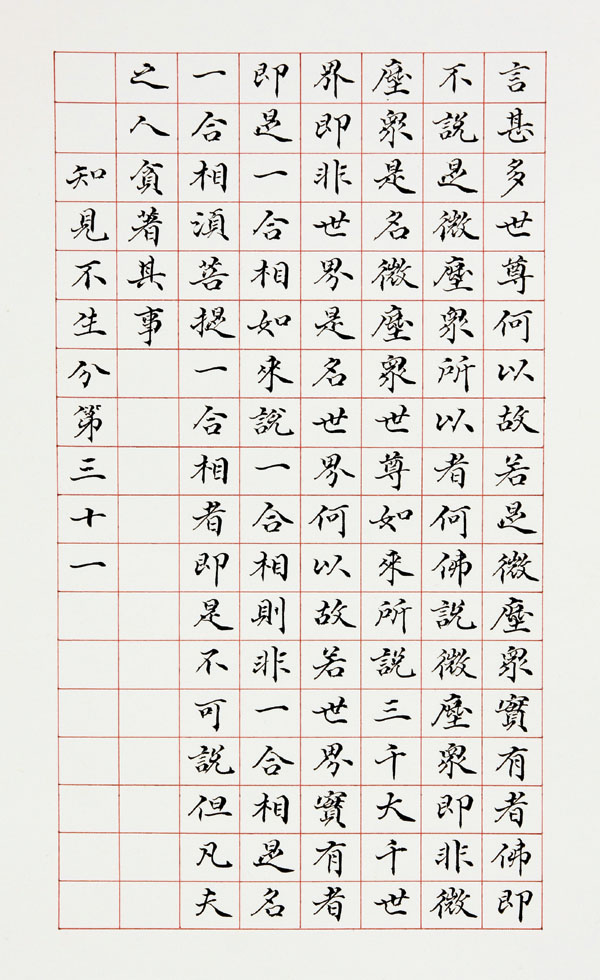 言甚多世尊何以故若是微塵眾實有者佛即
不說是微塵眾所以者何佛說微塵眾即非微
塵眾是名微塵眾世尊如來所說三千大千世
界即非世界是名世界何以故若世界實有者
即是一合相如來說一合相則非一合相是名
一合相須菩提一合相者即是不可說但凡夫
之人貪著其事
知見不生分第三十一